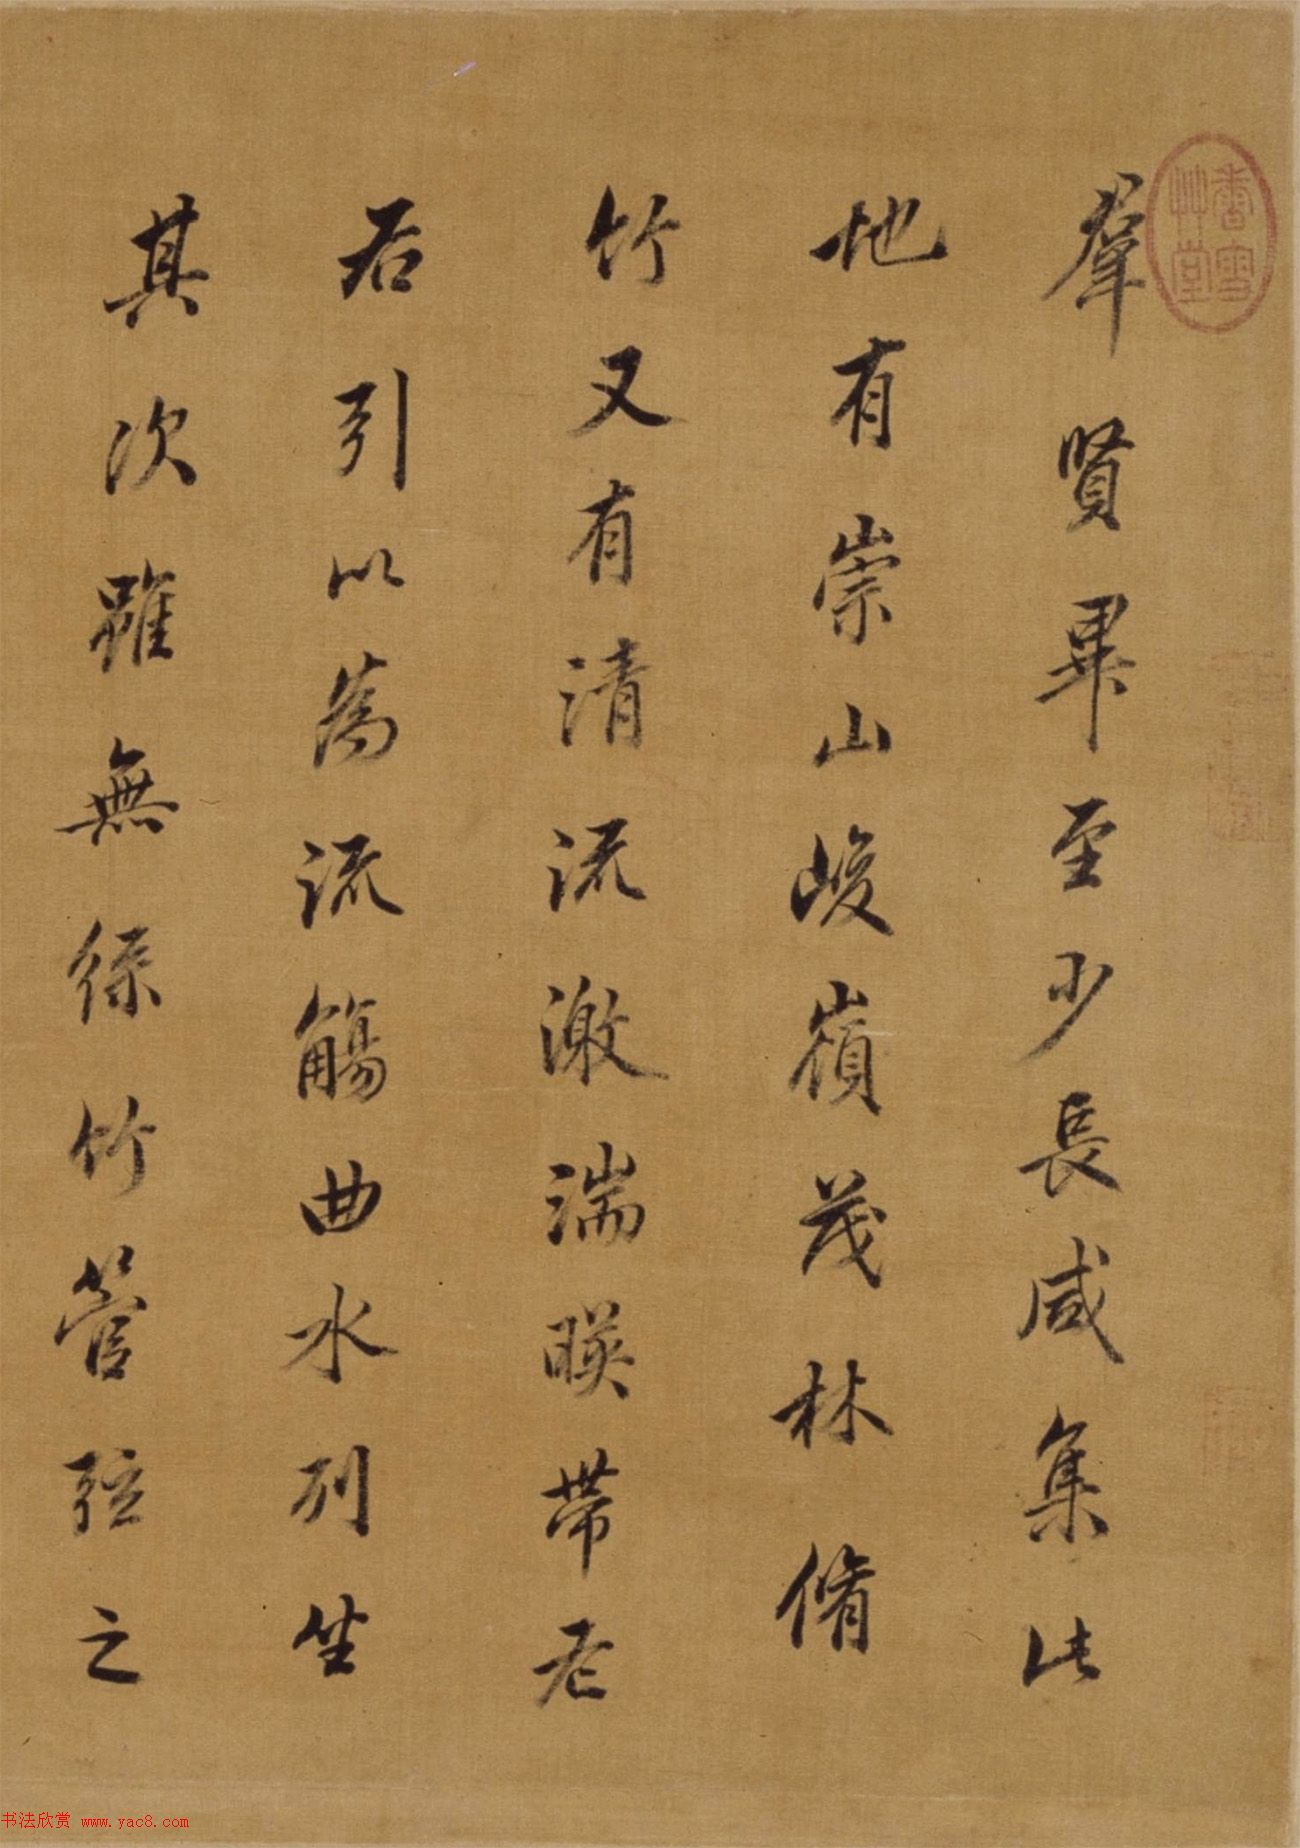 香雪艸堂
羣賢畢至少長咸集此
地有崇山峻嶺茂林脩
竹又有清流激湍暎帶左
右引以為流觴曲水列坐
其次雖無絲竹管弦之
书法欣赏 www.yac8.com